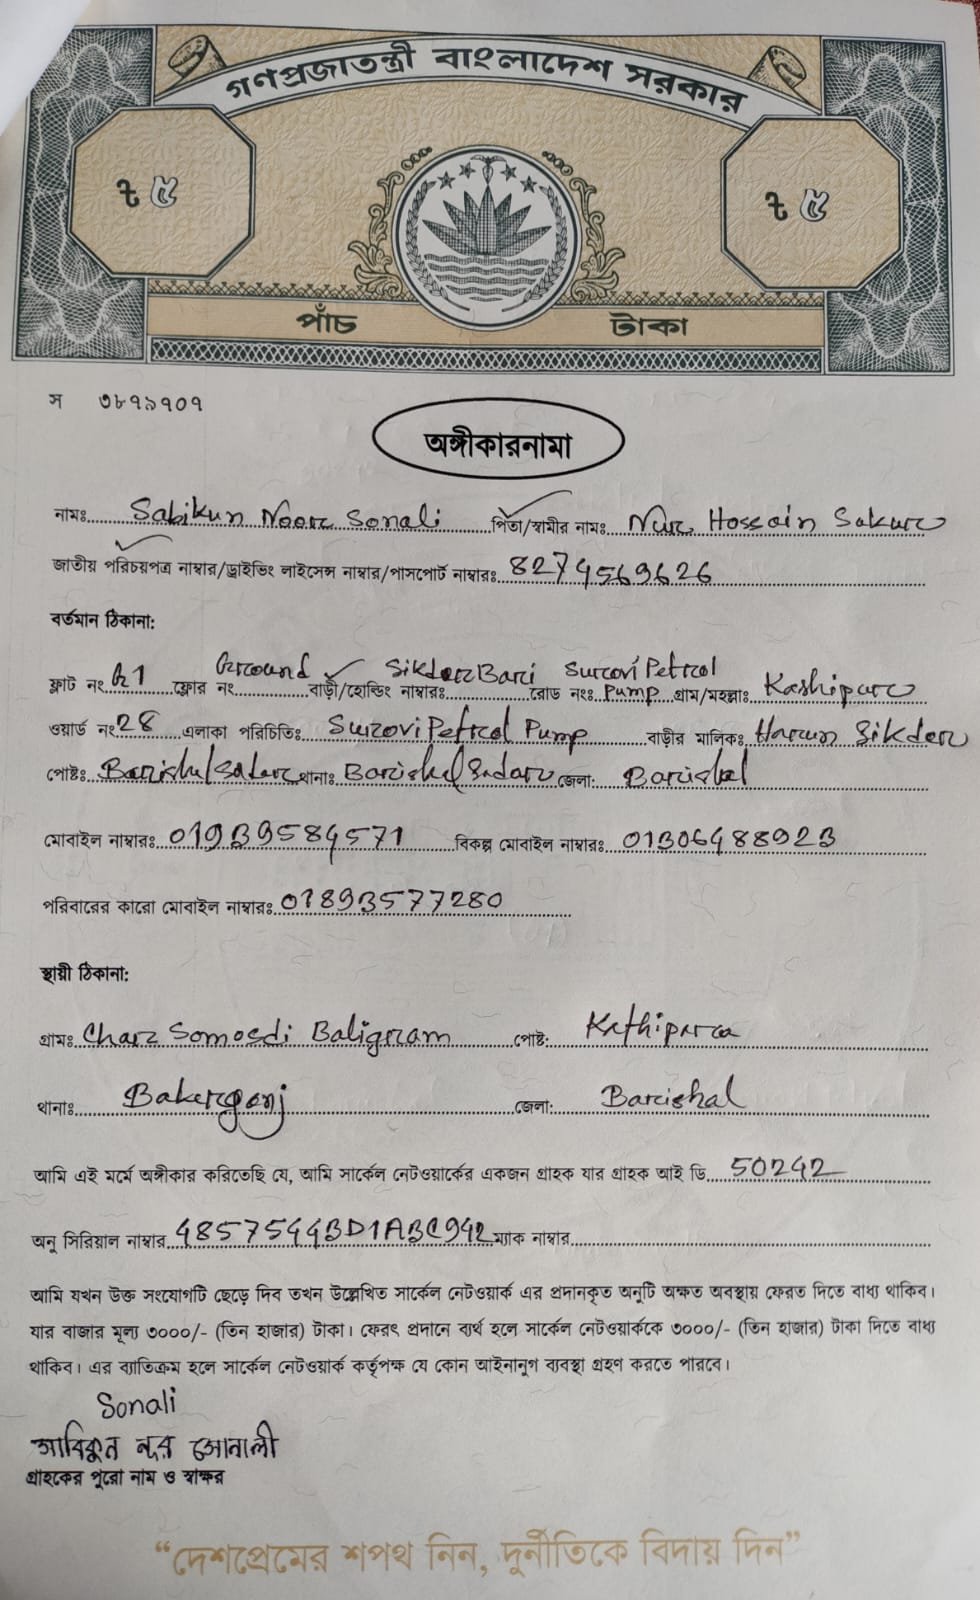 গণপ্রজাতন্ত্রী বাংলাদেশ সরকার
৳ ৫ ৳ ৫
পাঁচ টাকা
স ৩৮৭৯৭০৭
অঙ্গীকারনামা
নামঃ Sabikun Noor Sonali পিতা/স্বামীর নামঃ Nur Hossain Sakur
জাতীয় পরিচয়পত্র নাম্বার/ড্রাইভিং লাইসেন্স নাম্বার/পাসপোর্ট নাম্বারঃ 8274569626
বর্তমান ঠিকানা:
ফ্লাট নং G1 ফ্লোর নং Ground বাড়ী/হোল্ডিং নাম্বারঃ Sikder Bari রোড নংঃ Surovi Petrol Pump গ্রাম/মহল্লাঃ Kashipur
ওয়ার্ড নং 28 এলাকা পরিচিতিঃ Surovi Petrol Pump বাড়ীর মালিকঃ Harun Sikder
পোষ্টঃ Barishal Sadar থানাঃ Barishal Sadar জেলা: Barishal
মোবাইল নাম্বারঃ 01939584571 বিকল্প মোবাইল নাম্বারঃ 01306488923
পরিবারের কারো মোবাইল নাম্বারঃ 01893577280
স্থায়ী ঠিকানা:
গ্রামঃ Char Somosdi Baligram পোষ্ট: Kathipara
থানাঃ Bakerganj জেলা: Barishal
আমি এই মর্মে অঙ্গীকার করিতেছি যে, আমি সার্কেল নেটওয়ার্কের একজন গ্রাহক যার গ্রাহক আই ডি 50242
অনু সিরিয়াল নাম্বার 48575443D1ABC942 ম্যাক নাম্বার
আমি যখন উক্ত সংযোগটি ছেড়ে দিব তখন উল্লেখিত সার্কেল নেটওয়ার্ক এর প্রদানকৃত অনুটি অক্ষত অবস্থায় ফেরত দিতে বাধ্য থাকিব।
যার বাজার মূল্য ৩০০০/- (তিন হাজার) টাকা। ফেরৎ প্রদানে ব্যর্থ হলে সার্কেল নেটওয়ার্ককে ৩০০০/- (তিন হাজার) টাকা দিতে বাধ্য
থাকিব। এর ব্যতিক্রম হলে সার্কেল নেটওয়ার্ক কর্তৃপক্ষ যে কোন আইনানুগ ব্যবস্থা গ্রহণ করতে পারবে।
Sonali
সাবিকুন নূর সোনালী
গ্রাহকের পুরো নাম ও স্বাক্ষর
“দেশপ্রেমের শপথ নিন, দুর্নীতিকে বিদায় দিন”